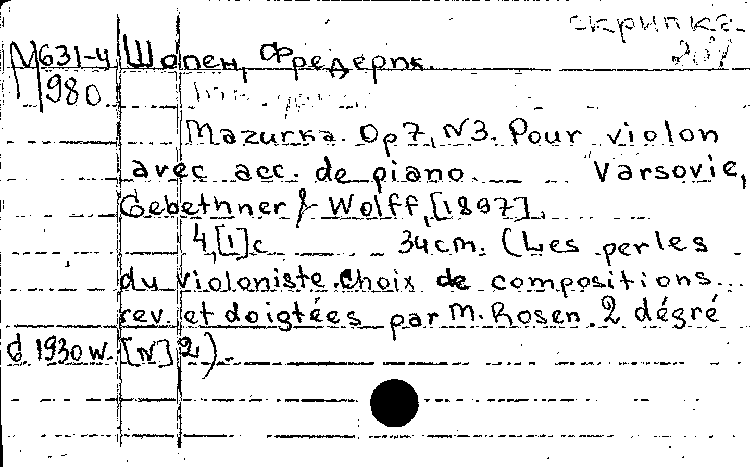 скрипка
М631-4 Шопен, Фредерик.
980
Mazurka. Op 7, N3. Pour violon
avec acc. de piano. Varsovie,
Gebethner & Wolff, [1897].
4,[1]с 34cm. (Les perles
du violoniste. Choix de compositions
rev. et doigtées par M. Rosen. 2 dégré
G 1930 W. [N] 2).